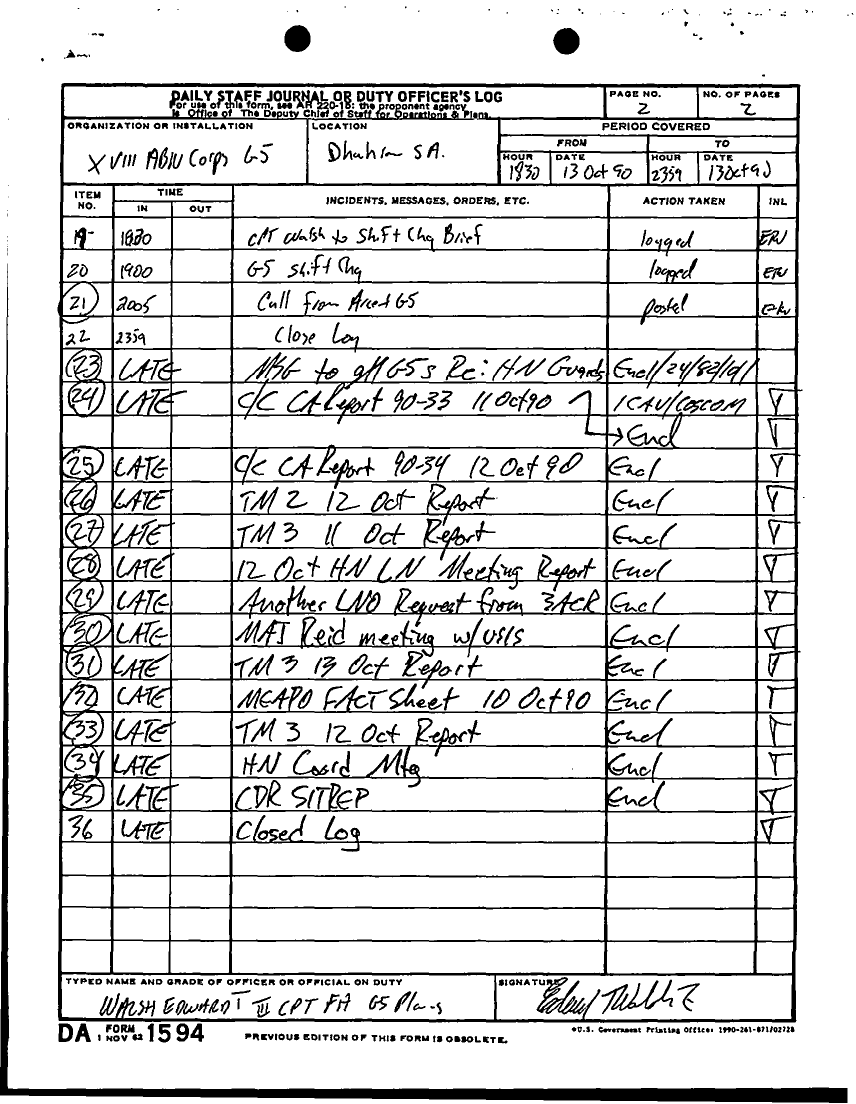 DAILY STAFF JOURNAL OR DUTY OFFICER'S LOG
For use of this form, see AR 220-15; the proponent agency
is Office of The Deputy Chief of Staff for Operations & Plans.
PAGE NO.
2
NO. OF PAGES
2
ORGANIZATION OR INSTALLATION
XVIII ABN Corps G5
LOCATION
Dhahran SA.
PERIOD COVERED
FROM
TO
HOUR
1830
DATE
13 Oct 90
HOUR
2359
DATE
13 Oct 90
ITEM NO.
TIME
IN
OUT
INCIDENTS, MESSAGES, ORDERS, ETC.
ACTION TAKEN
INL
19 1830 CPT Walsh to Shift Chg Brief logged
20 1900 G5 Shift Chg logged
21 2005 Call from Arcent G5 posted
22 2359 Close Log
23 LATE MSG to all G5s Re: HN Guards Encl/24/82/101/
24 LATE C/C CA Report 90-33 11 Oct 90 1CAV/COSCOM
→ Encl
25 LATE C/C CA Report 90-34 12 Oct 90 Encl
26 LATE TM 2 12 Oct Report Encl
27 LATE TM 3 11 Oct Report Encl
28 LATE 12 Oct HN LN Meeting Report Encl
29 LATE Another LNO Request from 3ACR Encl
30 LATE MAJ Reid meeting w/USIS Encl
31 LATE TM 3 13 Oct Report Encl
32 LATE MEAPO FACT Sheet 10 Oct 90 Encl
33 LATE TM 3 12 Oct Report Encl
34 LATE HN Coord Mtg Encl
35 LATE CDR SITREP Encl
36 LATE Closed Log
TYPED NAME AND GRADE OF OFFICER OR OFFICIAL ON DUTY
WALSH EDWARD T III CPT FA G5 Plans
SIGNATURE
DA FORM 1594
1 NOV 62
PREVIOUS EDITION OF THIS FORM IS OBSOLETE.
*U.S. Government Printing Office: 1990-261-871/02728